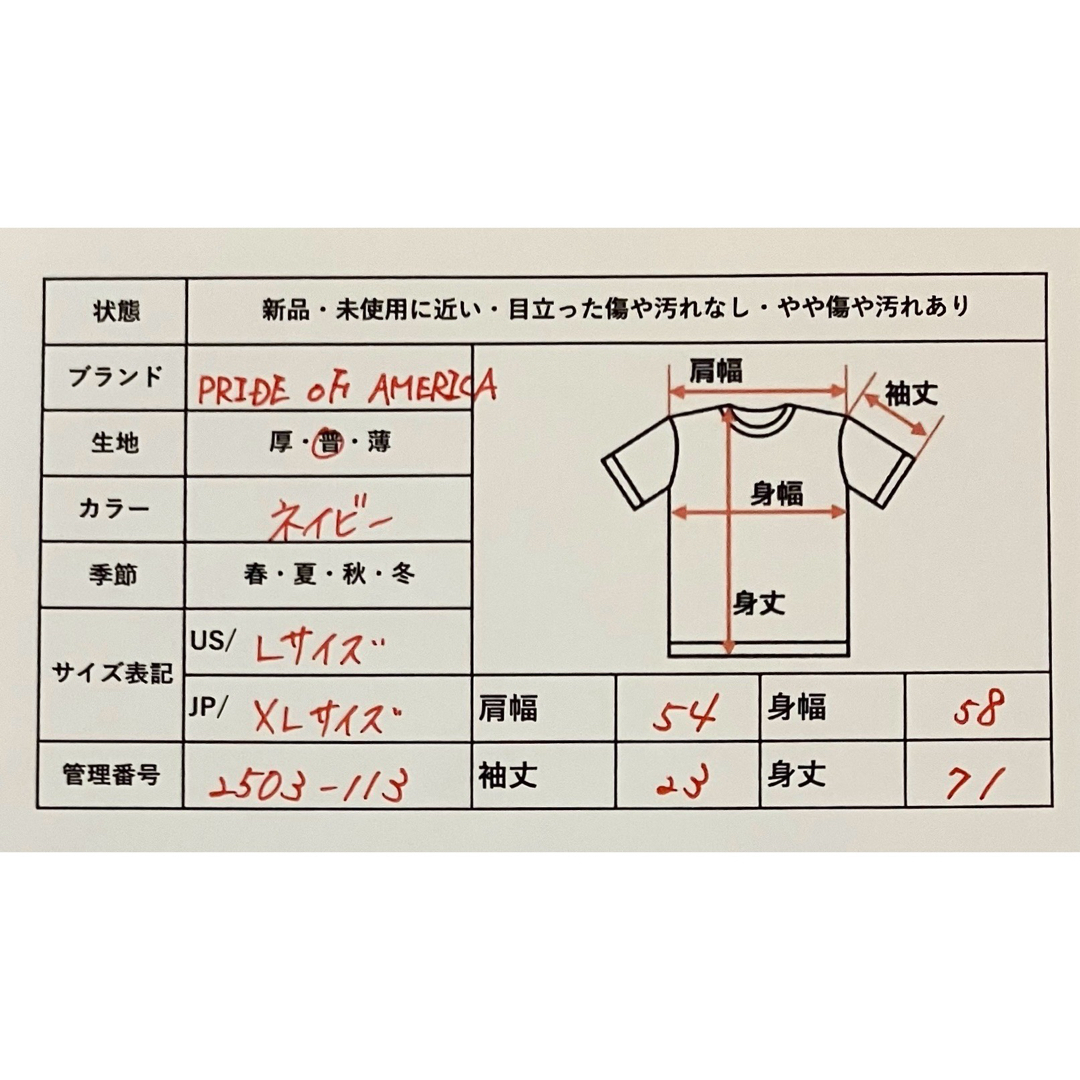 状態 新品・未使用に近い・目立った傷や汚れなし・やや傷や汚れあり
ブランド PRIDE OF AMERICA
生地 厚・普・薄
カラー ネイビー
季節 春・夏・秋・冬
サイズ表記
US/ Lサイズ
JP/ XLサイズ
管理番号 2503-113
肩幅
袖丈
身幅
身丈
肩幅 54 身幅 58
袖丈 23 身丈 71